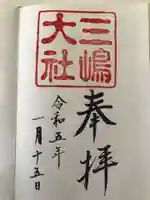 奉拝
三嶋
大社
令和五年
一月十五日